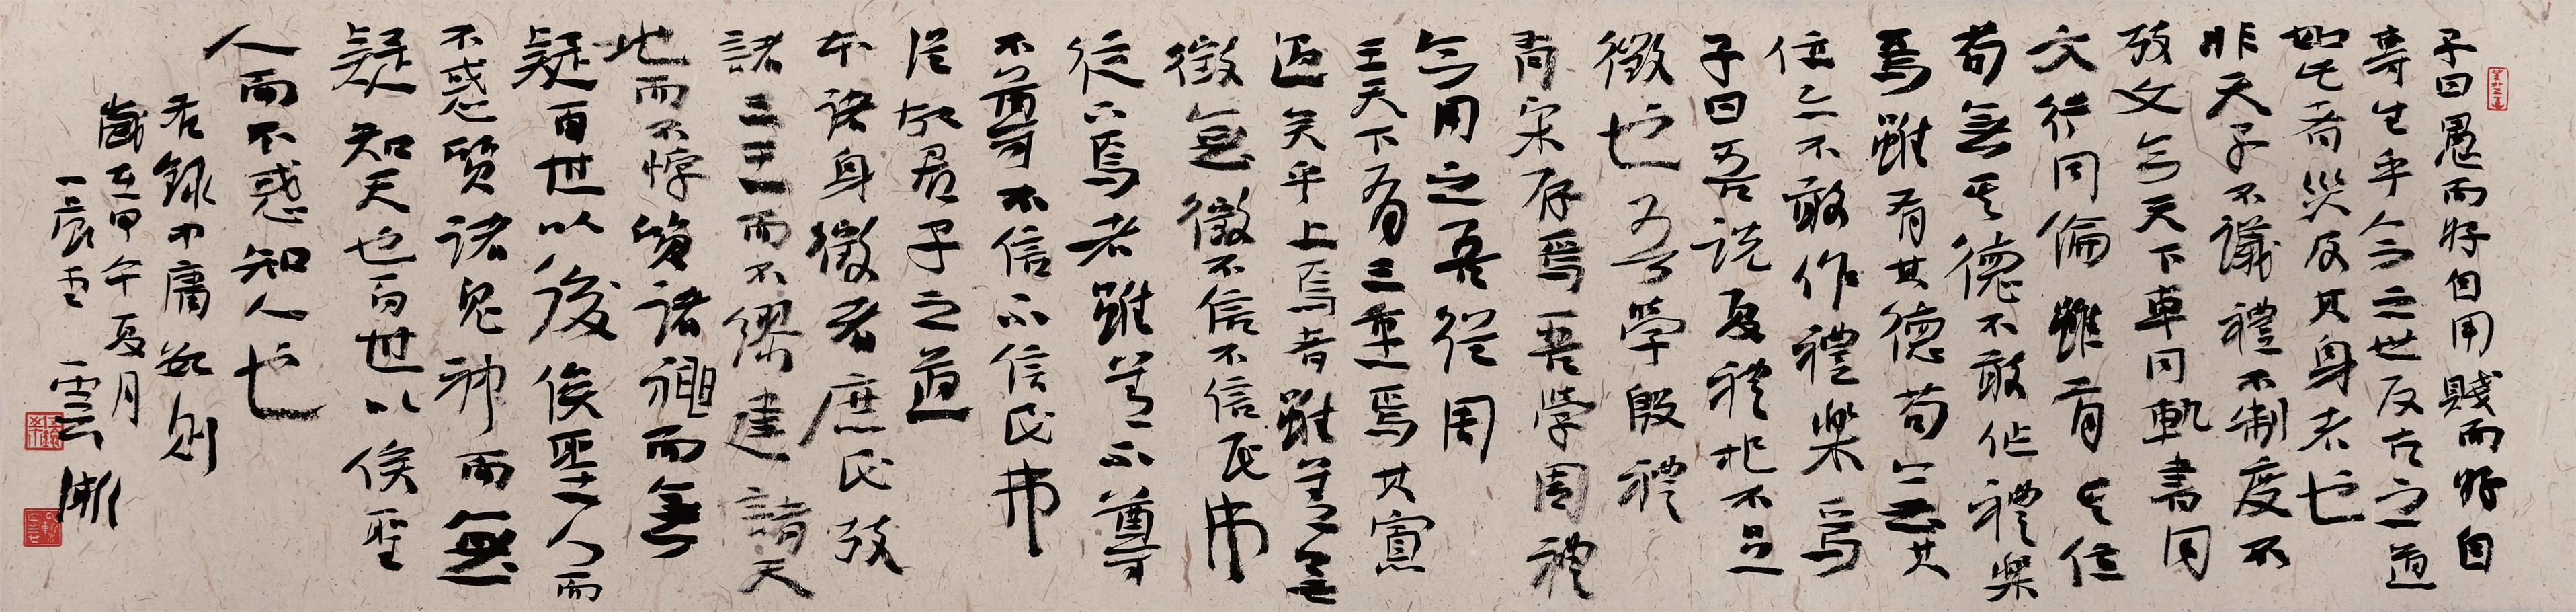 子曰愚而好自用賤而好自
專生乎今之世反古之道
如此者災及其身者也
非天子不議禮不制度不
攷文今天下車同軌書同
文行同倫雖有其位
苟無其德不敢作禮樂
焉雖有其德苟無其
位亦不敢作禮樂焉
子曰吾說夏禮杞不足
徵也吾學殷禮
有宋存焉吾學周禮
今用之吾從周
王天下有三重焉其寡
過矣乎上焉者雖善無
徵無徵不信不信民弗
從下焉者雖善不尊
不尊不信不信民弗
從故君子之道
本諸身徵者庶民攷
諸三王而不繆建諸天
地而不悖質諸神而無
疑百世以後俟聖人而
不惑質諸鬼神而無
疑知天也百世以俟聖
人而不惑知人也
右錄中庸數則
歲在甲午夏月
一宸堂 雲